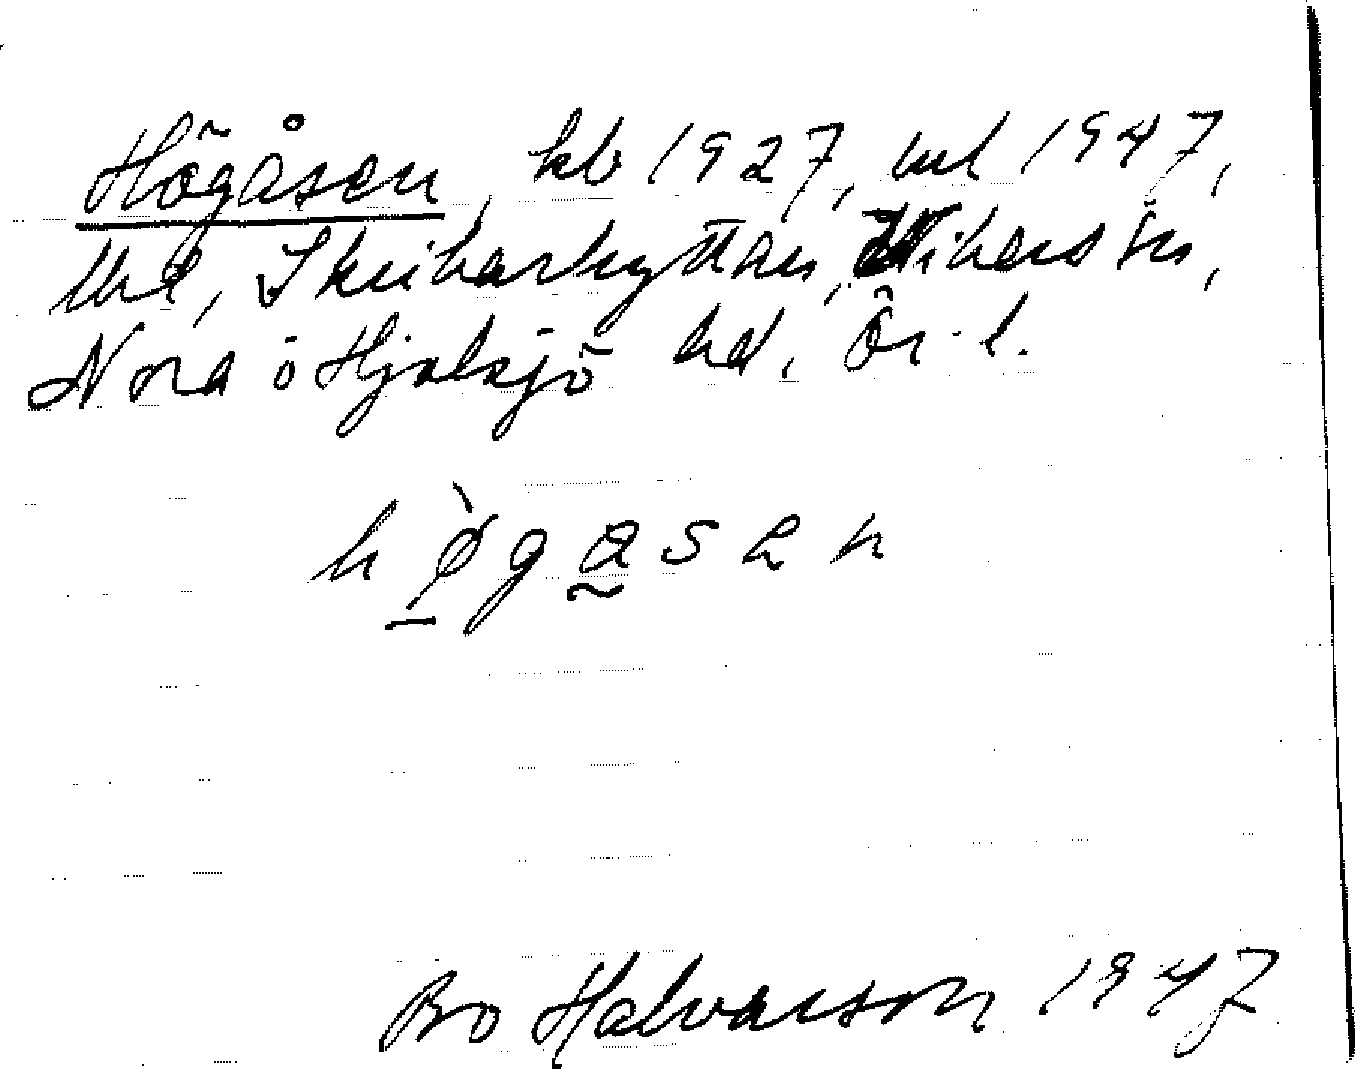 Högåsen, kb 1927, ml 1947,
lht, Skrikarhyttan, Vikers sn,
Nora o Hjulsjö hd, Ör. l.
hø̀gåsen
Bo Halvarson 1947